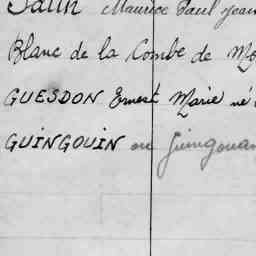 Maurice Paul Jean
Blanc de la Combe de
GUESDON Ernest Marie né
GUINGOUIN ou